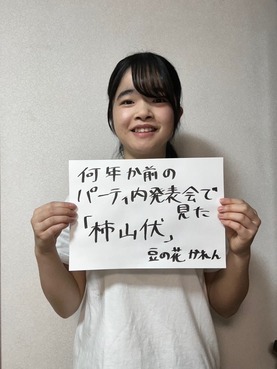 何年か前の
パーティ内発表会で
見た
「柿山伏」
豆の花 かれん